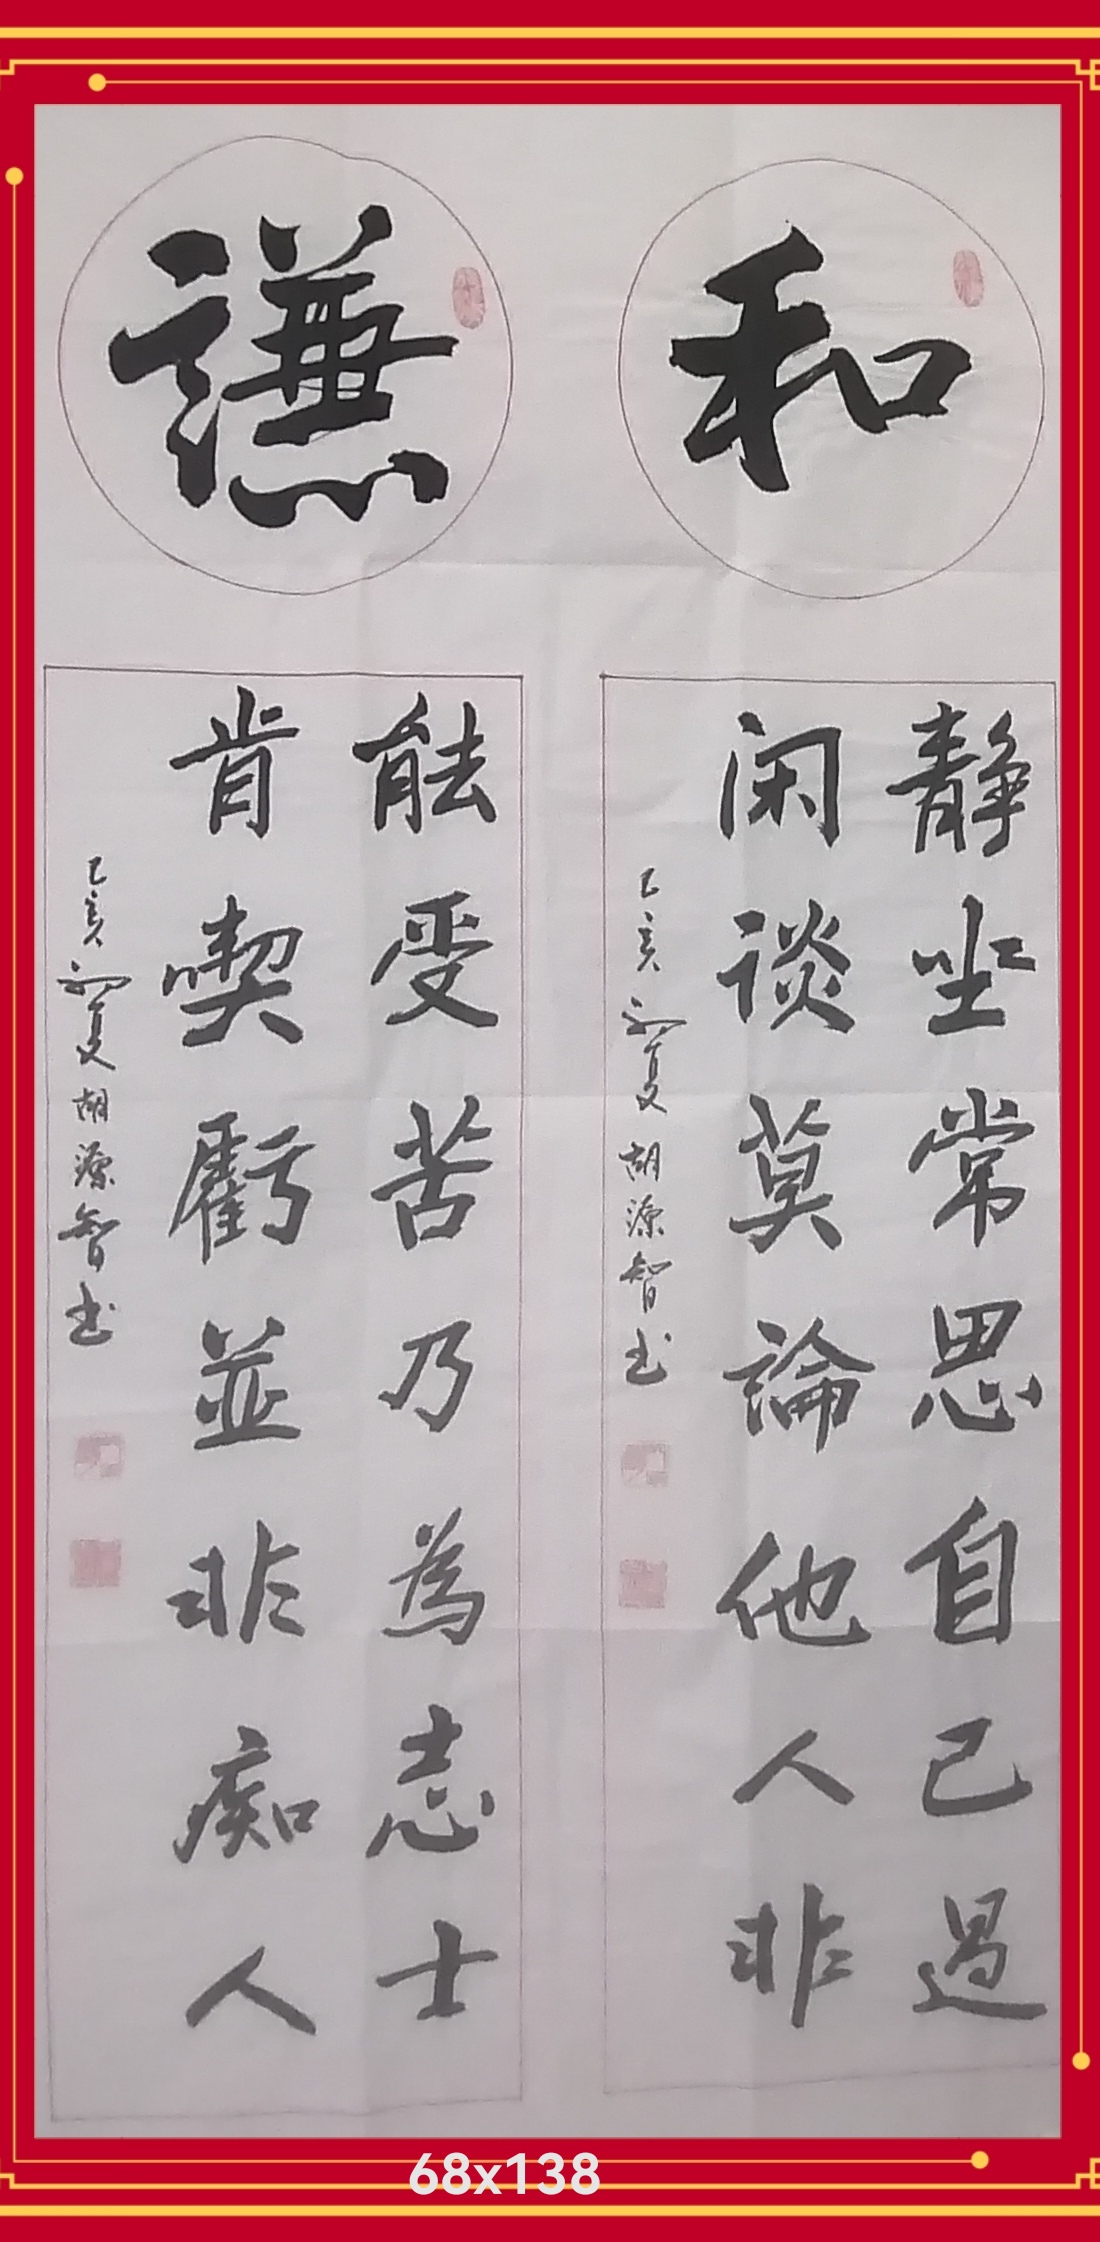 和
静坐常思自己過
闲談莫論他人非
己亥初夏胡源智书
謙
能受苦乃為志士
肯喫虧並非痴人
己亥初夏胡源智书
68x138